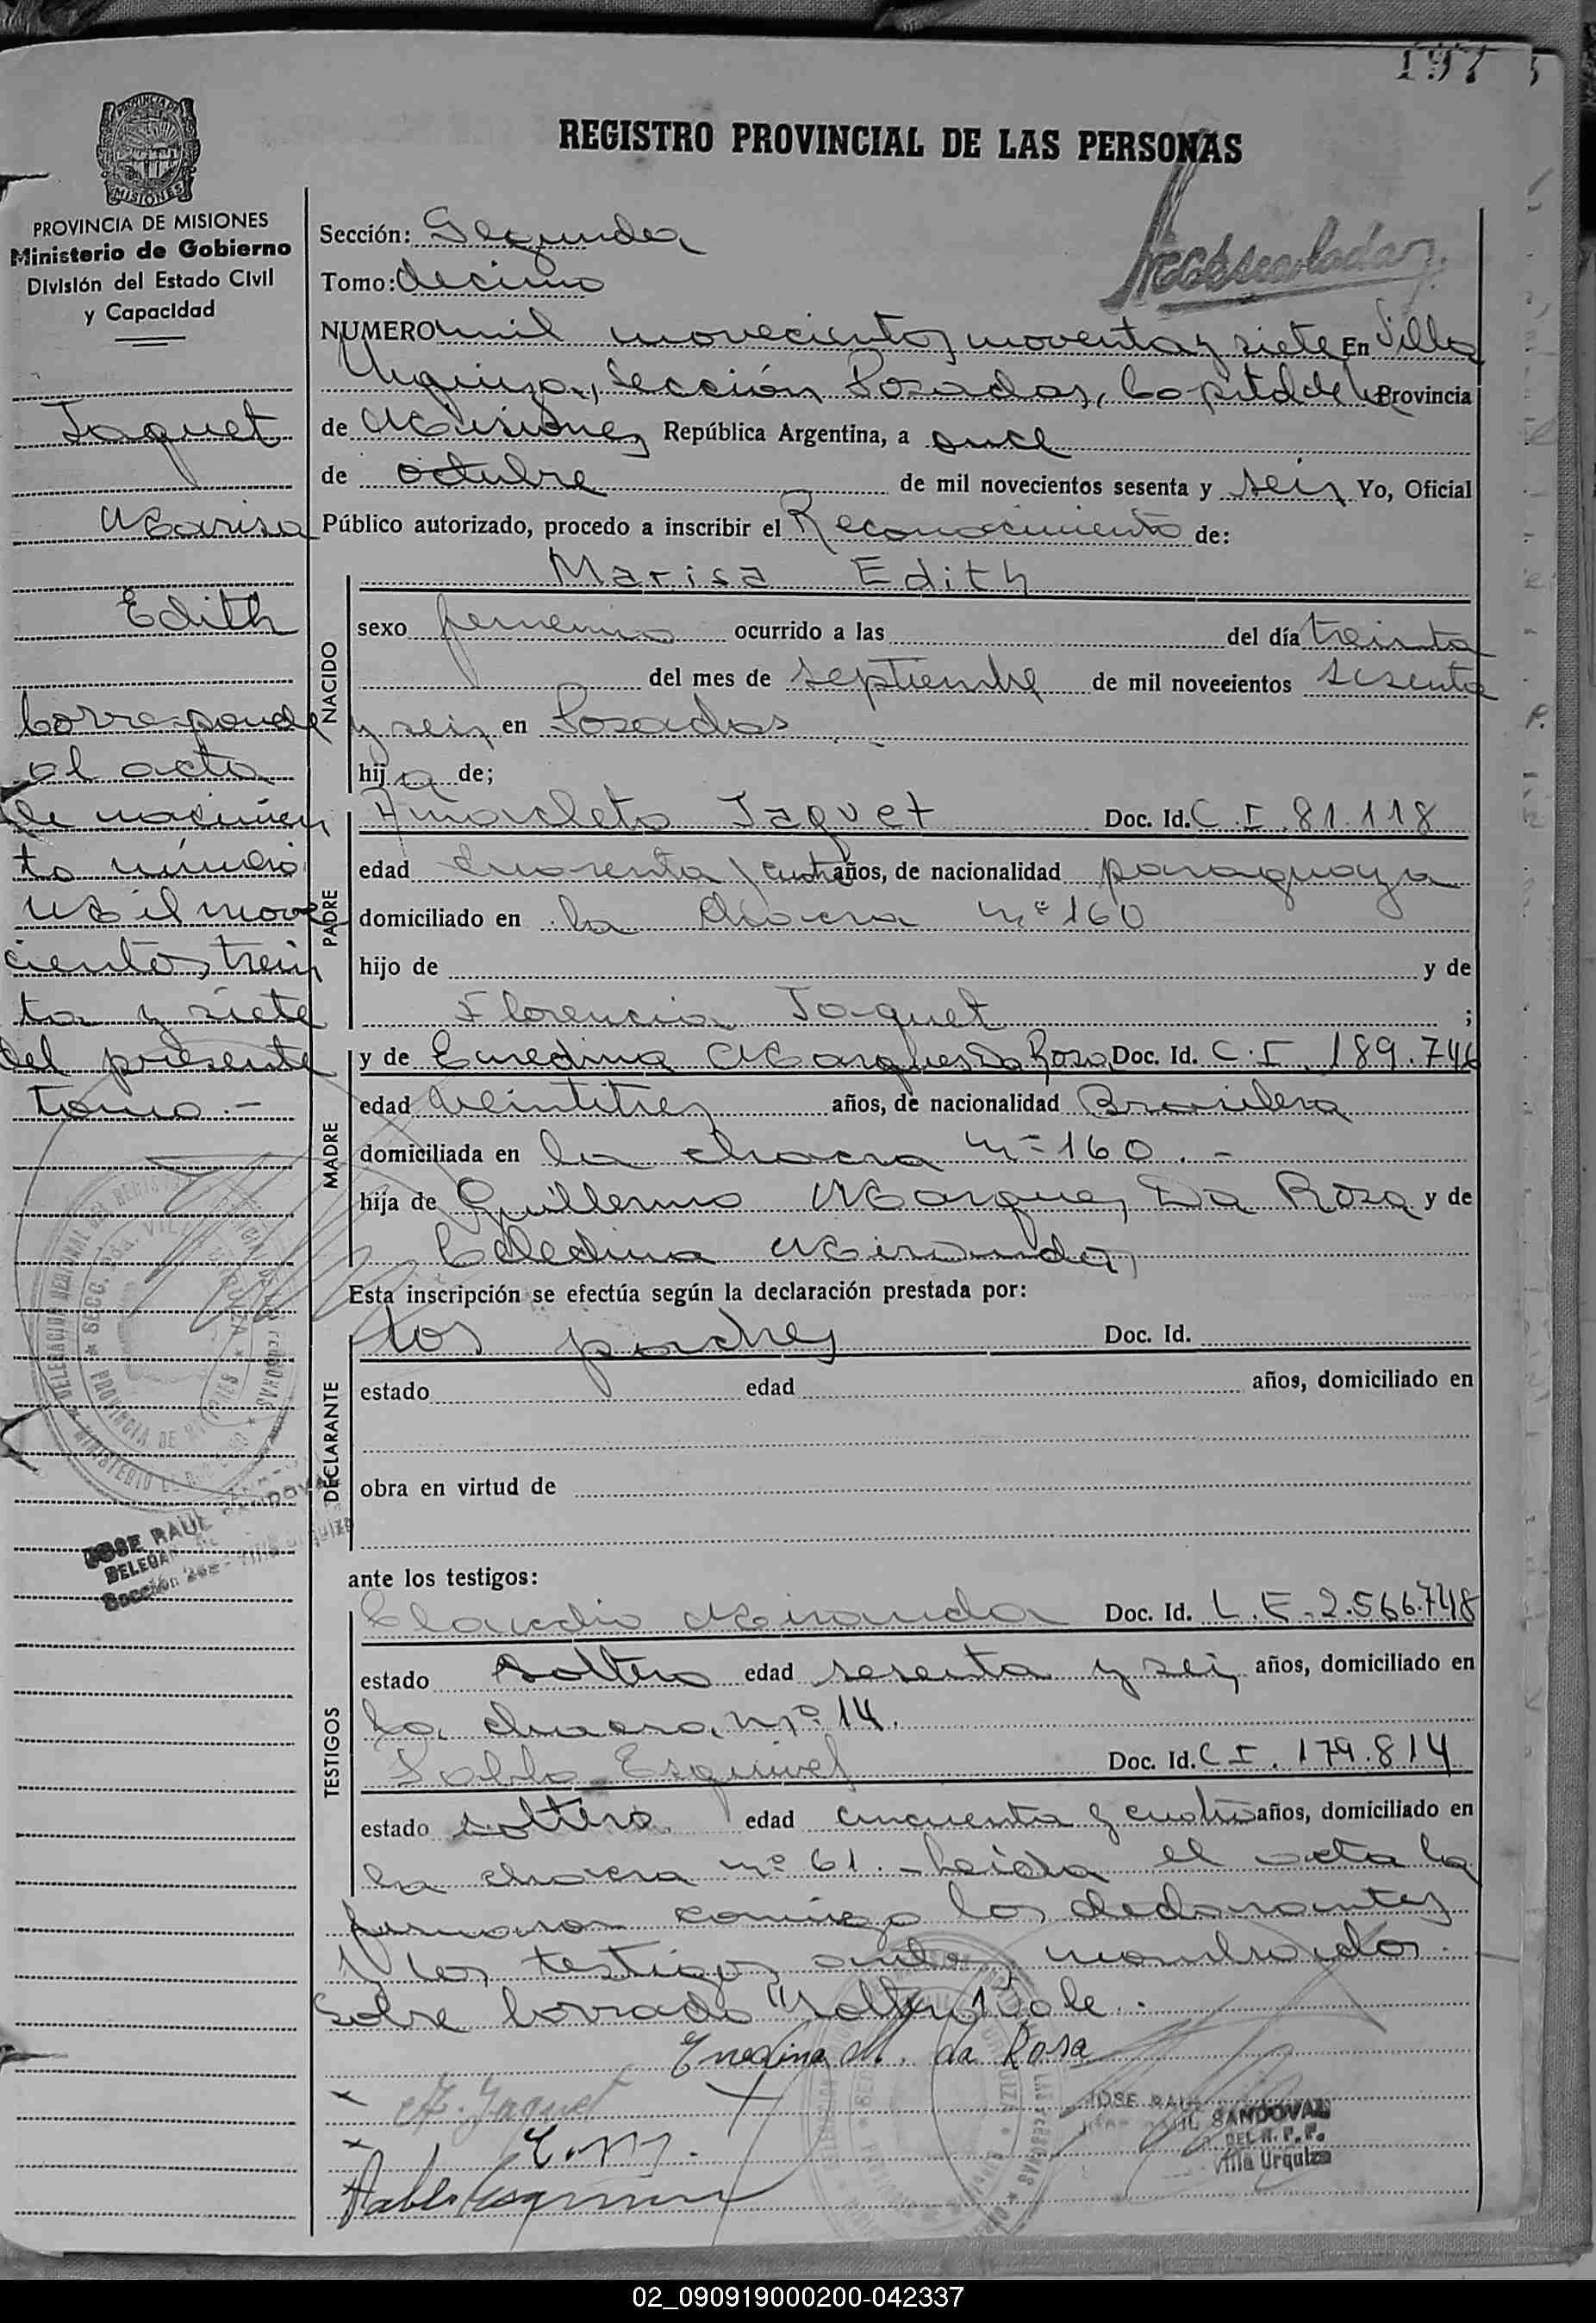 197
REGISTRO PROVINCIAL DE LAS PERSONAS
PROVINCIA DE MISIONES
Ministerio de Gobierno
División del Estado Civil
y Capacidad
Jaquet
Marisa
Edith
Corresponde
al acta
de nacimien
to número
Mil nove
cientos trein
ta y siete
del presente
tomo.-
Sección: Segunda
Tomo: decimo
NUMERO mil novecientos noventa y siete En Villa
Urquiza, Sección Posadas, Capital de la Provincia
de Misiones República Argentina, a once
de octubre de mil novecientos sesenta y seis Yo, Oficial
Público autorizado, procedo a inscribir el Reconocimiento de:
NACIDO
Marisa Edith
sexo femenino ocurrido a las del día treinta
del mes de septiembre de mil novecientos sesenta
y seis en Posadas
hija de;
PADRE
Anacleto Jaquet Doc. Id. C.I. 81.118
edad Cuarenta y cuatro años, de nacionalidad paraguaya
domiciliado en la chacra nº 160
hijo de y de
Florencia Jaquet ;
MADRE
y de Enedina Marques Da Rosa Doc. Id. C.I. 189.746
edad Veintitres años, de nacionalidad Brasilera
domiciliada en la chacra nº 160.-
hija de Guillermo Marques Da Rosa y de
Celedina Miranda
Esta inscripción se efectúa según la declaración prestada por:
DECLARANTE
los padres Doc. Id.
estado edad años, domiciliado en
obra en virtud de
ante los testigos:
TESTIGOS
Claudio Miranda Doc. Id. L.E. 2.566.748
estado soltero edad sesenta y seis años, domiciliado en
la chacra nº 14.
Pablo Esquivel Doc. Id. C I. 179.814
estado soltero edad cincuenta y cuatro años, domiciliado en
la chacra nº 61.- Leida el acta la
firmaron conmigo los declarantes
y los testigos antes nombrados.
Sobre borrado Vale.
Enedina M. da Rosa
A. Jaquet
C.M.
Pablo Esquivel
JOSE RAUL SANDOVAL
DEL R. P. P.
Villa Urquiza
JOSE RAUL SANDOVAL
Sección 2da - Villa Urquiza
02_090919000200-042337